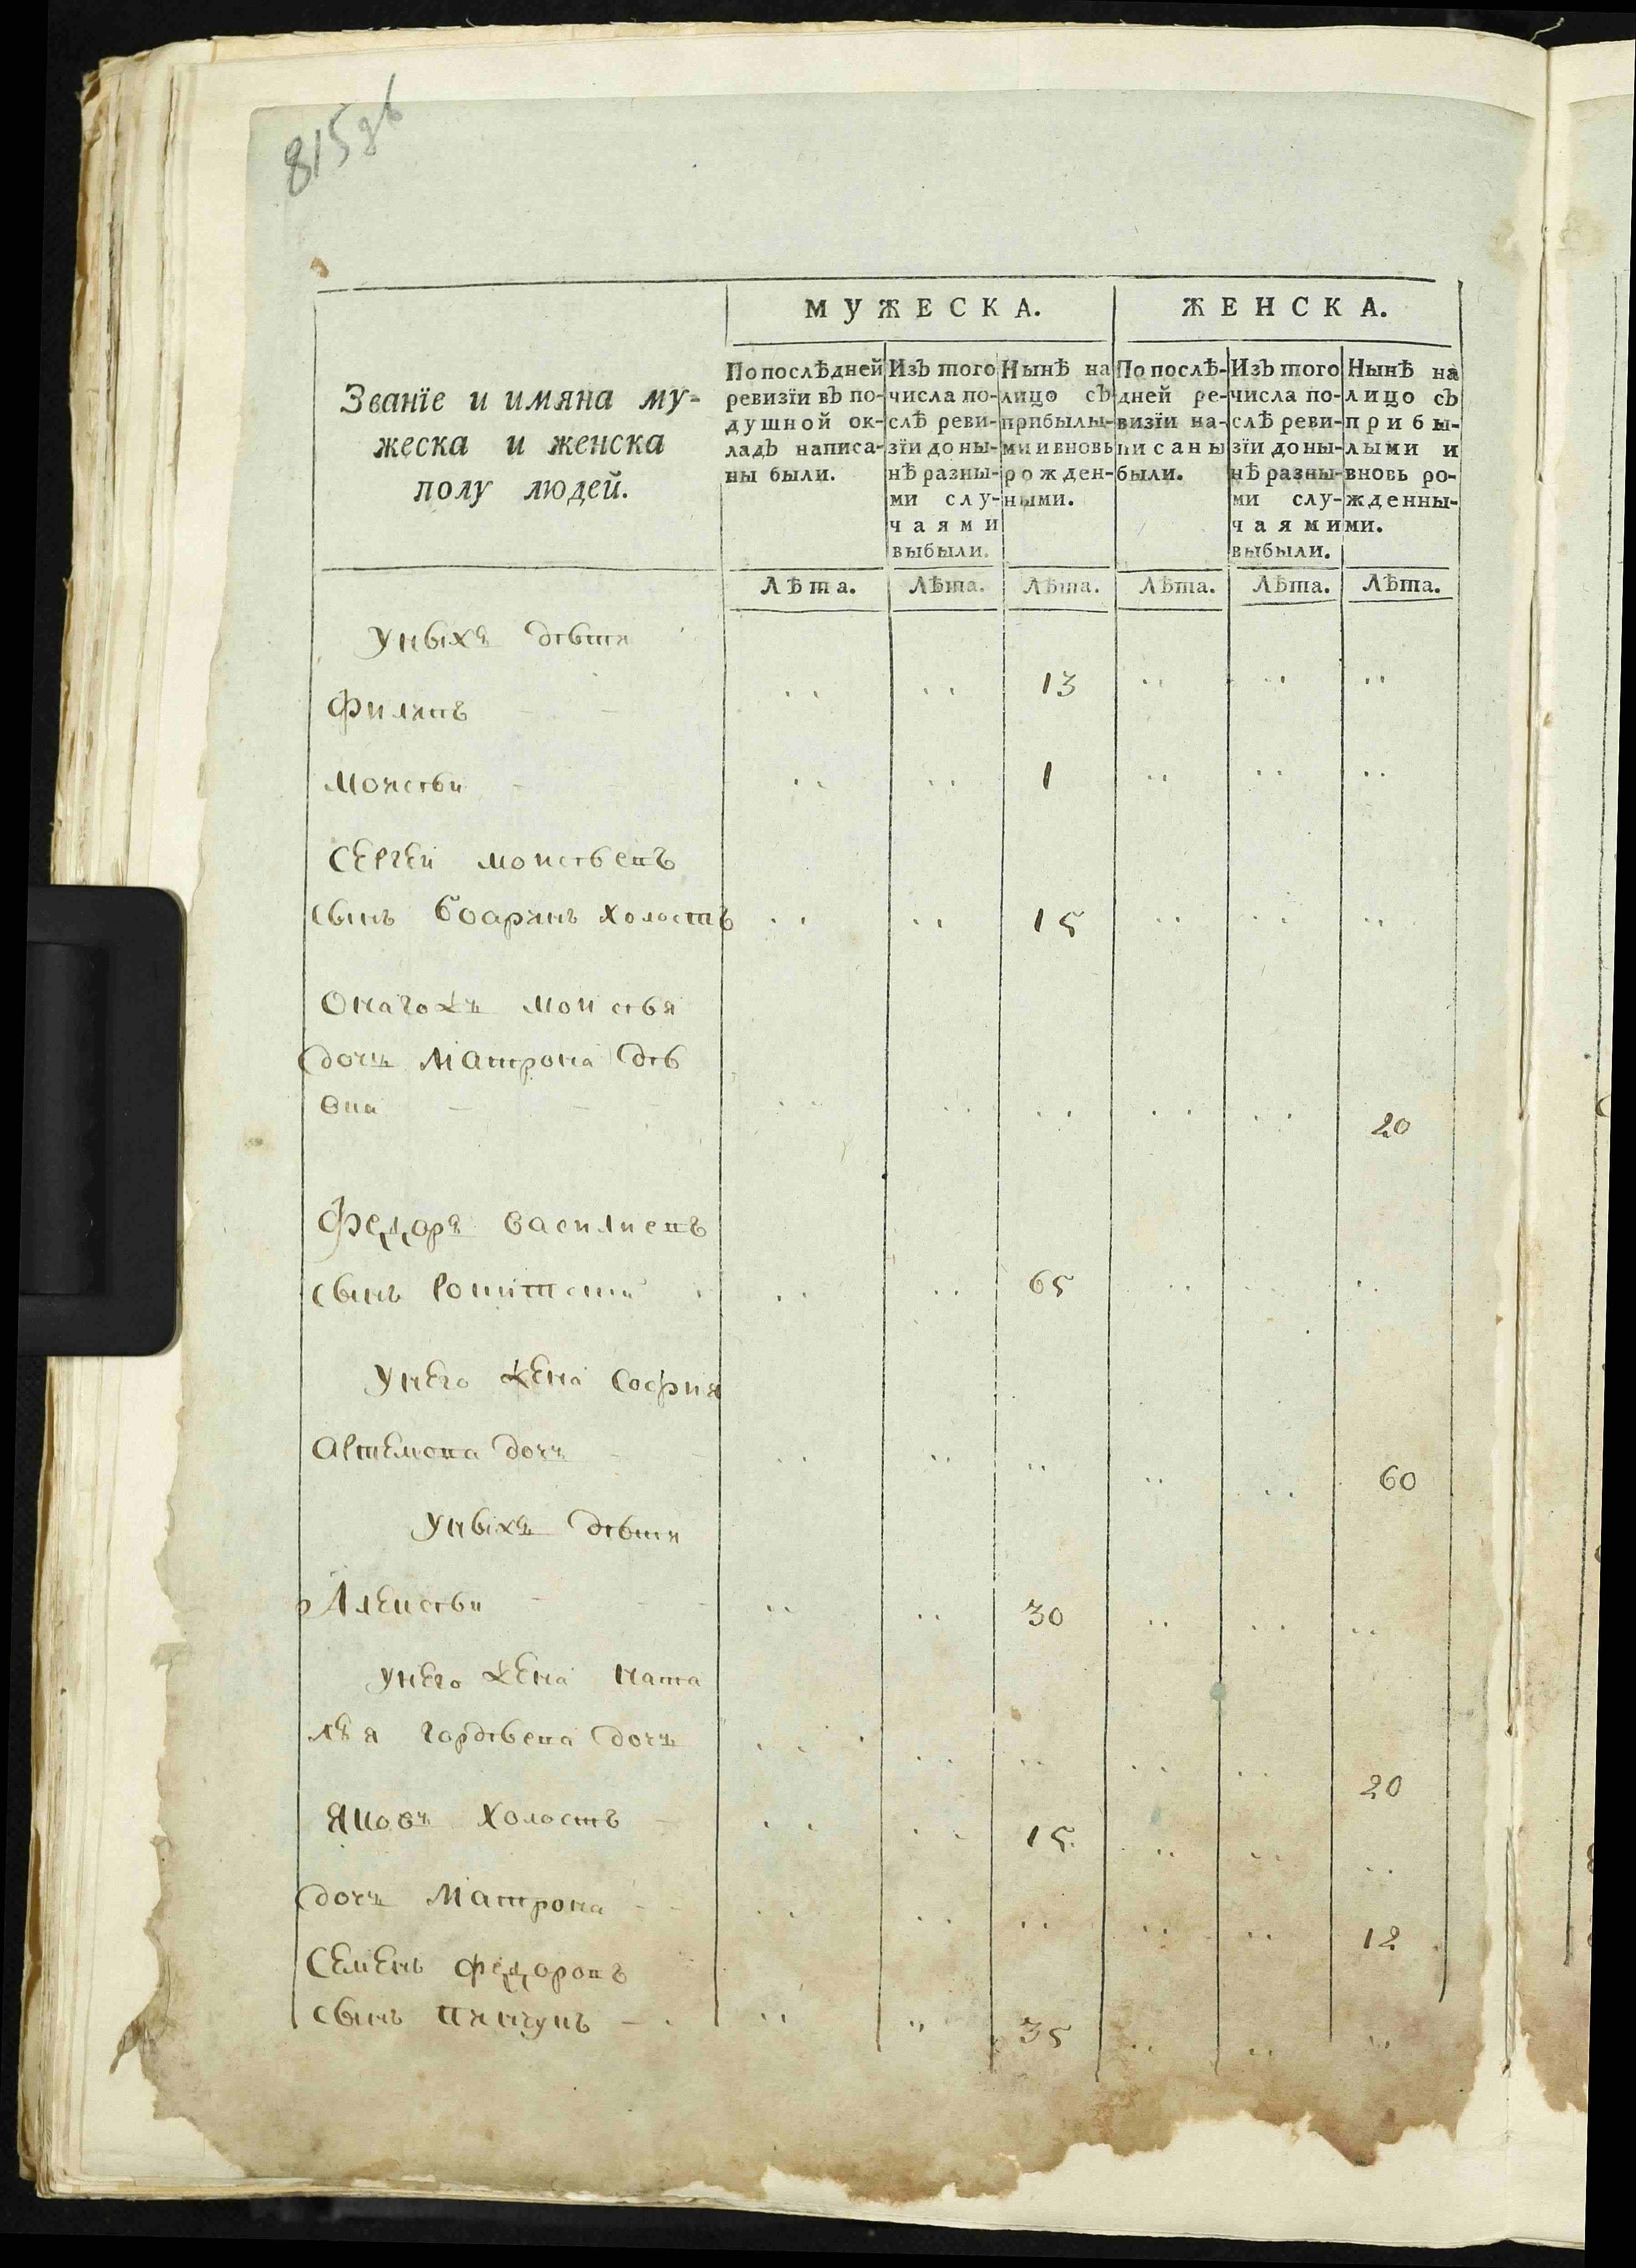 815 об
МУЖЕСКА. ЖЕНСКА.
Званїе и имяна му-
жеска и женска
полу людей.
По послѣдней
ревизїи въ по-
душной ок-
ладъ написа-
ны были.
Изъ того
числа по-
слѣ реви-
зїи до ны-
нѣ разны-
ми слу-
чаями
выбыли.
Нынѣ на
лицо съ
прибылы-
ми и вновь
рожден-
ными.
По послѣ-
дней ре-
визїи на-
писаны
были.
Изъ того
числа по-
слѣ реви-
зїи до ны-
нѣ разны-
ми слу-
чаями
выбыли.
Нынѣ на
лицо съ
прибы-
лыми и
вновь ро-
жденны-
ми.
Лѣта. Лѣта. Лѣта. Лѣта. Лѣта. Лѣта.
Уныхъ дѣти
Филипъ 13
Моисѣи 1
Сергеи моисѣевъ
сынъ холостъ 15
Оногожъ моисѣя
дочь Матрона дѣ
вка 20
Федоръ василиевъ
сынъ 65
Унего жена София
Артемова дочь 60
Уныхъ дѣти
Алексѣи 30
Унего жена Ната
лъя гордѣева дочь 20
Яковъ холостъ 15
дочь Матрона 12
Семенъ федоровъ
сынъ 35